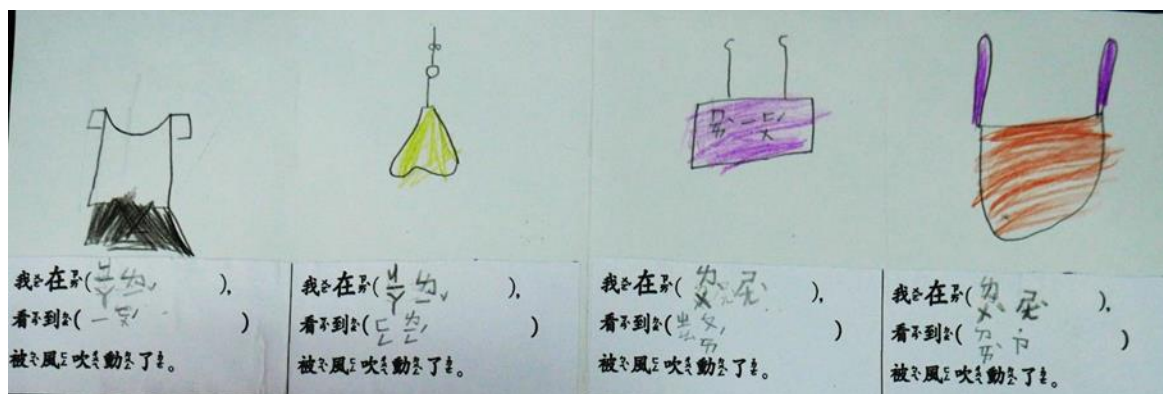 我在(ㄐㄧㄚ ㄌㄧˇ),
看到(ㄧ ㄈㄨˊ)
被風吹動了。
我在(ㄐㄧㄚ ㄌㄧˇ),
看到(ㄈㄥ ㄌㄧㄥˊ)
被風吹動了。
我在(ㄌㄨˋ ㄕㄤˋ),
看到(ㄓㄠ ㄆㄞˊ)
被風吹動了。
我在(ㄌㄨˋ ㄕㄤˋ),
看到(ㄉㄞˋ ㄗ˙)
被風吹動了。